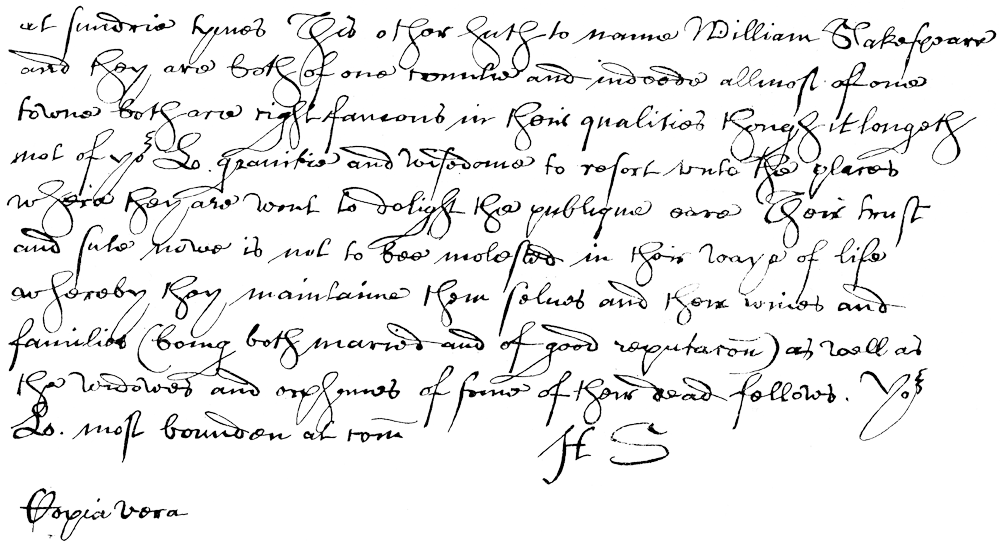 at sundrie tymes This other hath to name William Shakespeare
and they are both of one countie and indeede allmost of one
towne both are right famous in their qualities though it longeth
not of yor Lo. gravitie and wisedome to resort vnto the places
where they are wont to delight the publique eare Their trust
and sute nowe is not to bee molested in their waye of life
whereby they maintaine them selves and their wives and
families (being both maried and of good reputacon) as well as
the widowes and orphanes of some of their dead fellows. Yor
Lo. most bounden at com
H S
Copia vera